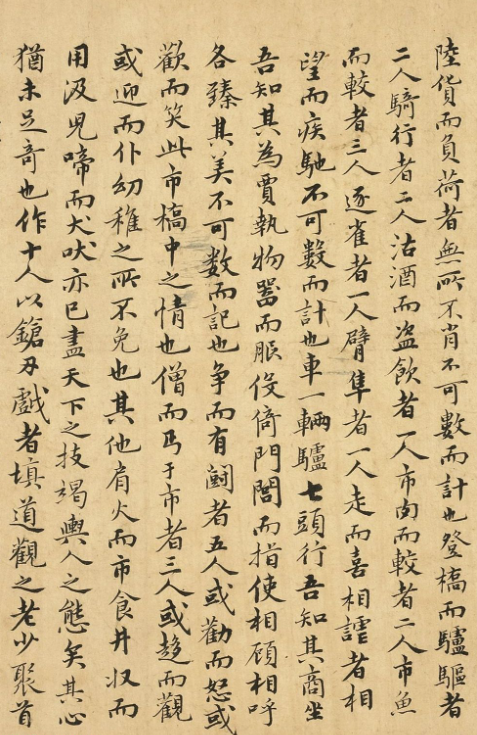 陸貨而負荷者無所不肖不可數而計也登橋而驢驅者
二人騎行者二人沽酒而盜飲者一人市肉而較者二人市魚
而較者三人逐雀者一人臂隼者一人走而喜相謔者相
望而疾馳不可數而計也車一輛驢七頭行吾知其商坐
吾知其為賈執物器而服役倚門閭而指使相顧相呼
各臻其美不可數而記也爭而有鬭者五人或勸而怒或
歡而笑此市橋中之情也僧而丐于市者三人或趨而觀
或迎而仆幼稚之所不免也其他肩火而市食井収而
用汲兒啼而犬吠亦已盡天下之技竭輿人之態矣其心
猶未足奇也作十人以鎗刃戲者填道觀之老少聚首